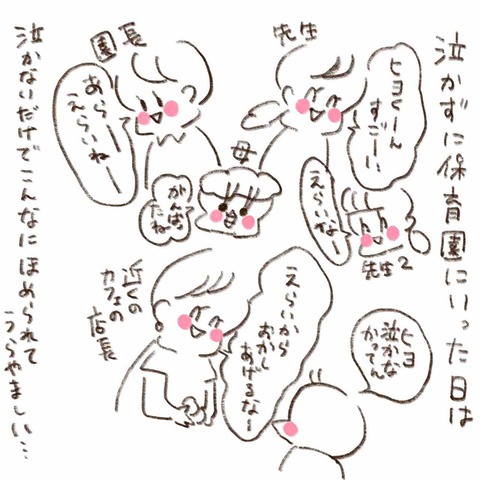 泣かずに保育園にいった日は
先生
ヒヨくーん
すごーい!
園長
あらー
えらいねー
母
がんばっ
たね
えらいなー
先生2
ヒヨ
泣かな
かてん
えらいから
おかし
あげるなー
近くの
カフェの
店長
泣かないだけでこんなにほめられて
うらやましい…